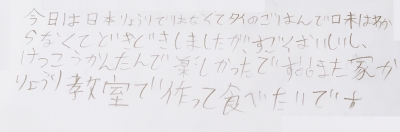 今日は日本りょうりではなくてタイのごはんで口未はわか
らなくてどきどきしましたが、すごくおいしいし、
けっこうかんたんで楽しかったです。また家か
りょうり教室で作って食べたいです